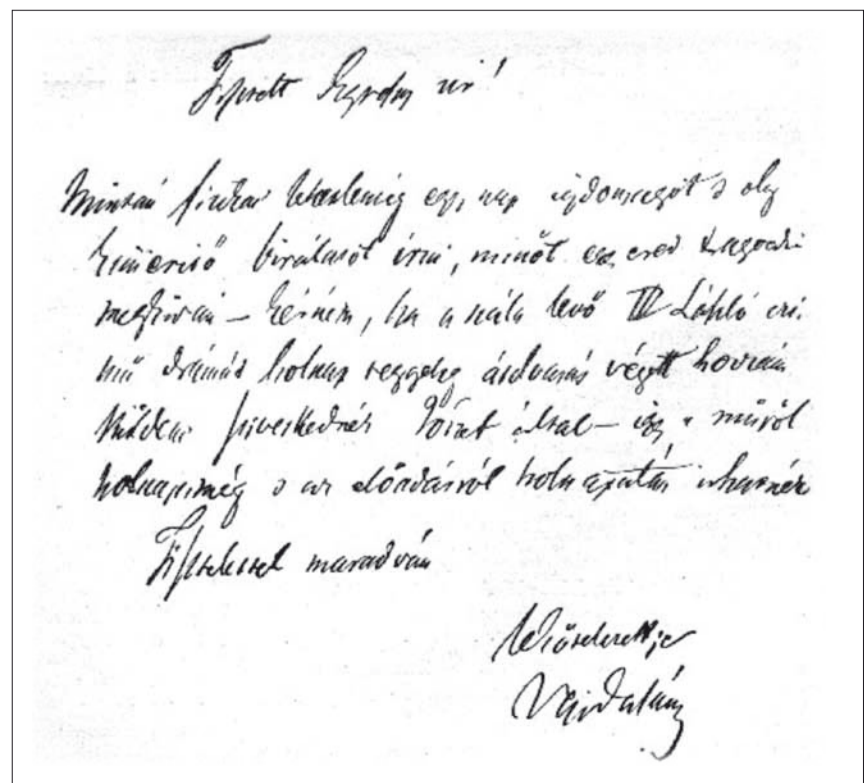 Tisztelt Egressy úr!
Miután fizikai lehetetlenség egy nap ujdonságot s oly
birálatot irni, minőt ez eredeti tragoedia
megkiván – kérném, ha a nála levő IV László czi-
mű drámát holnap reggelig átolvasás végett hozzám
küldeni sziveskednék Pórat által – igy a műről
holnap még s az előadásról holnapután irhatnék
Tisztelettel maradván
lekötelezettje
Vajda János